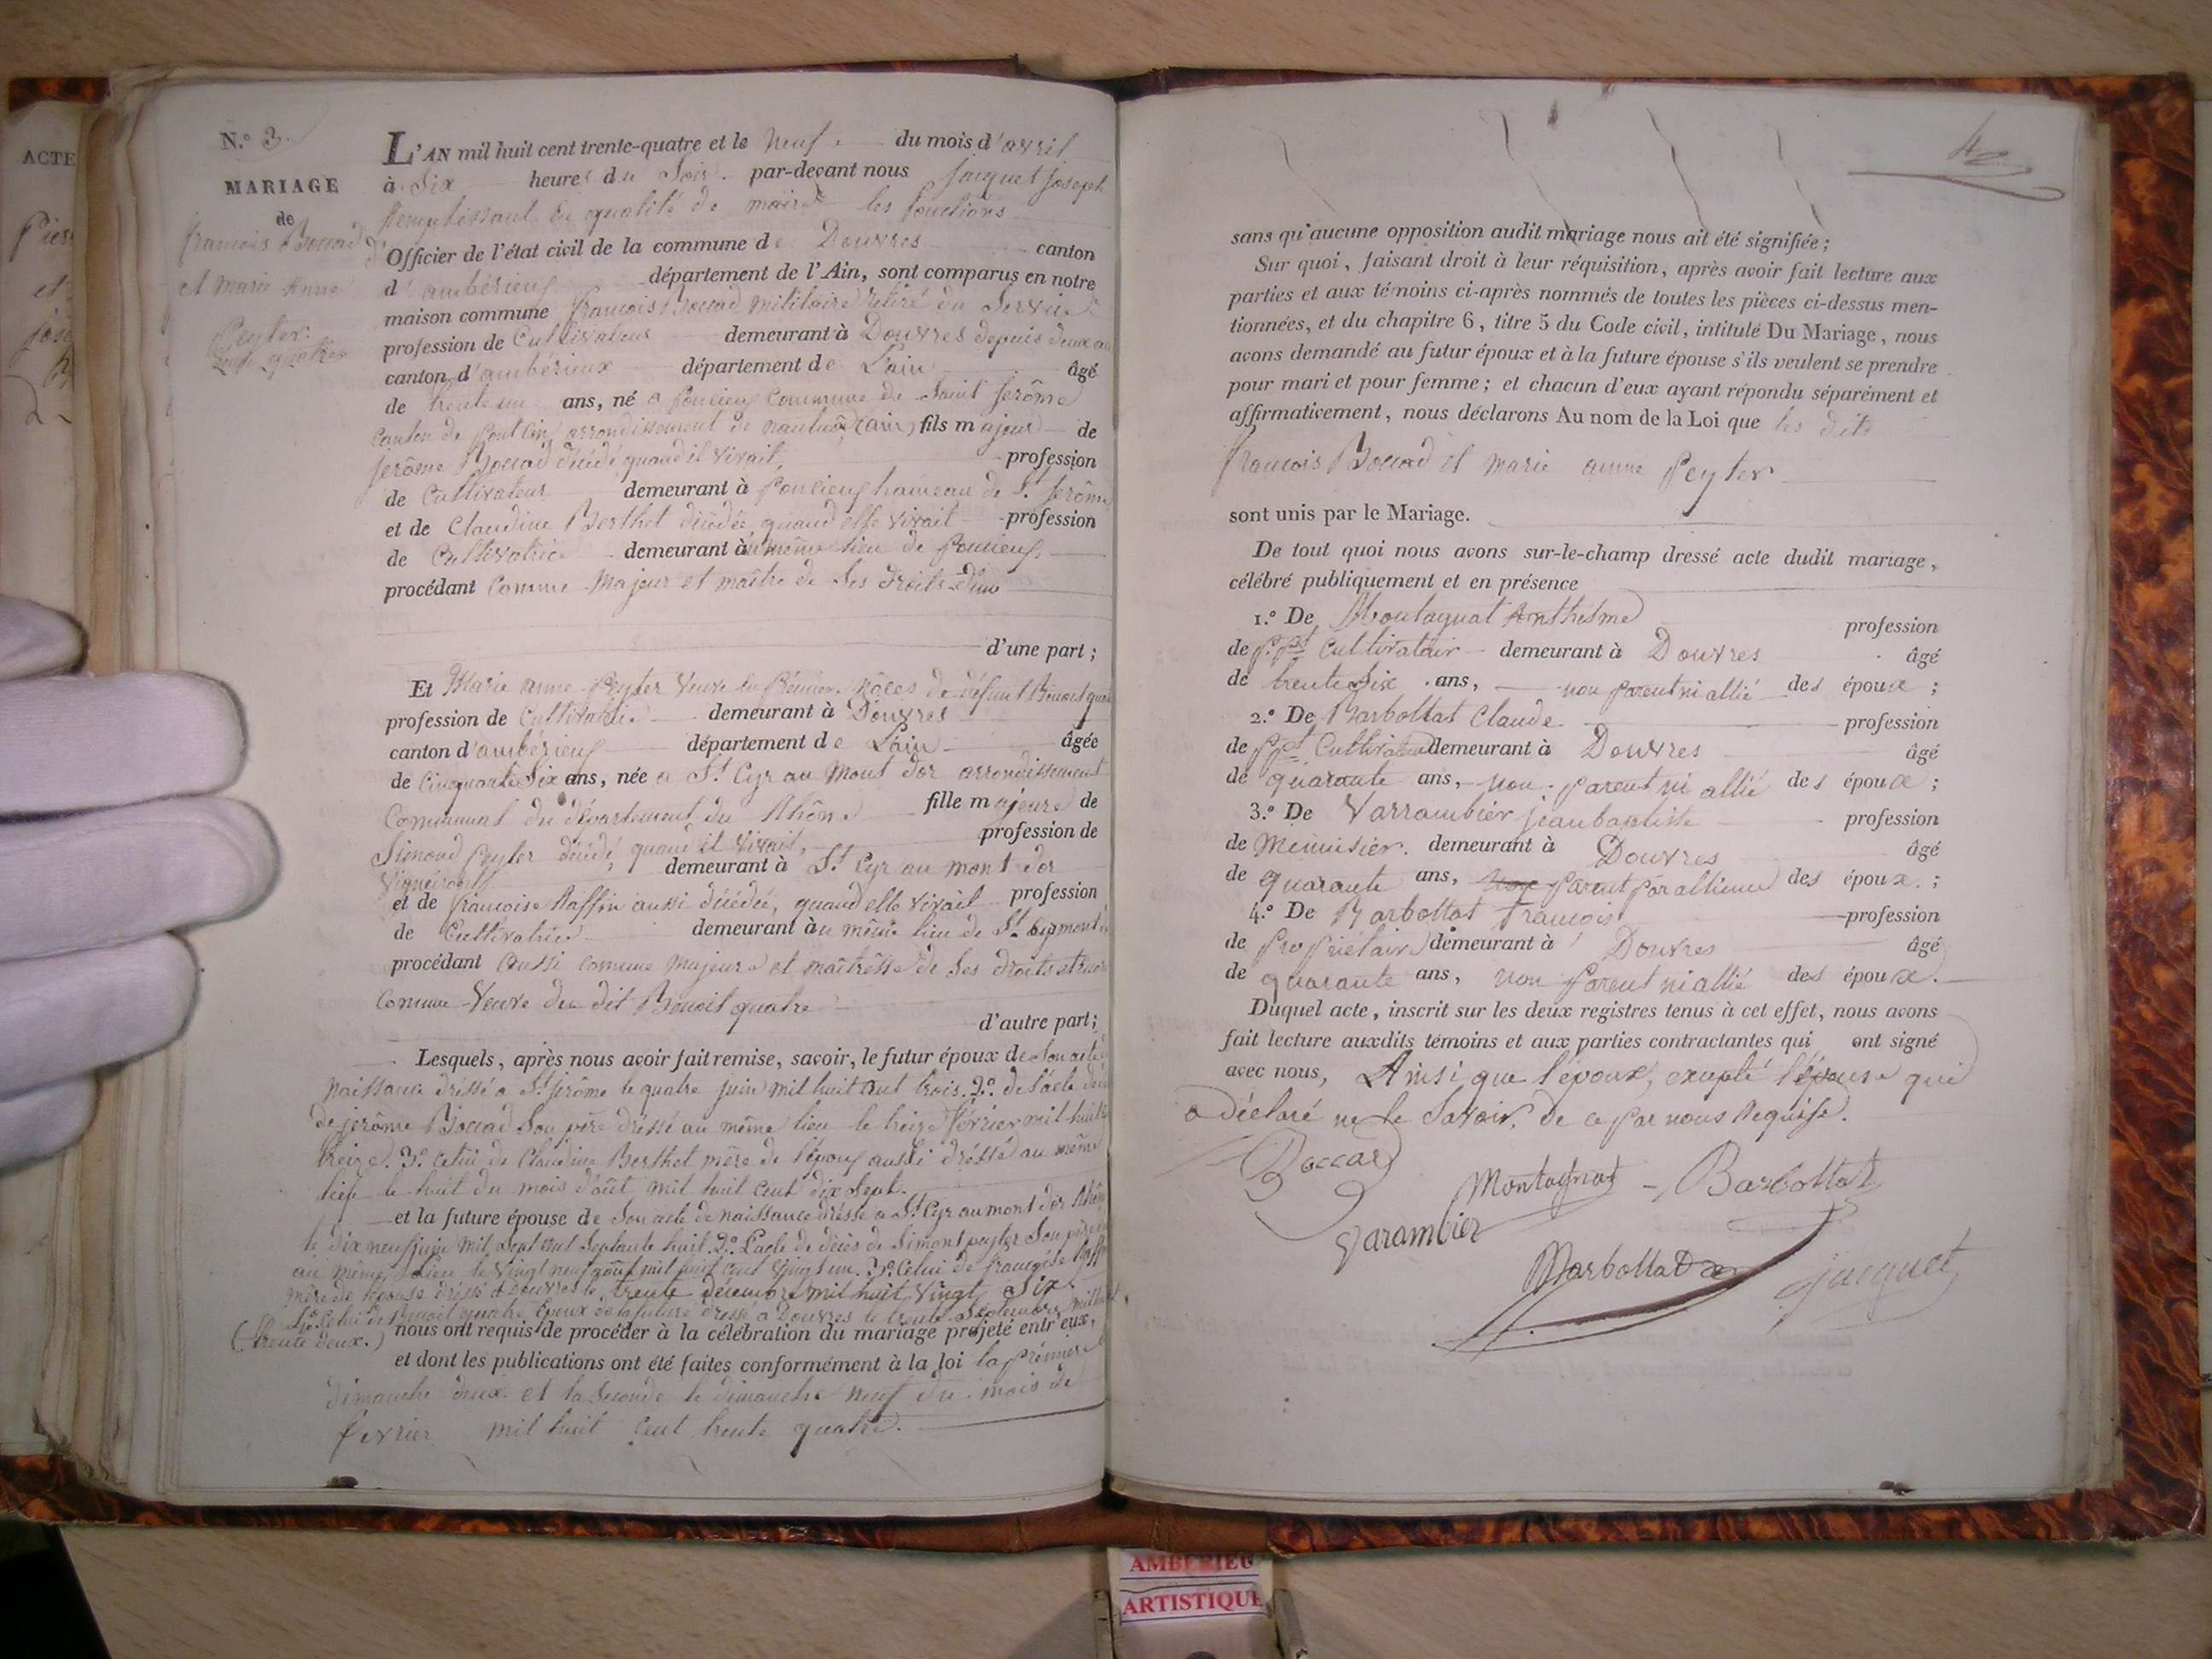 ACTE
Pier
et
N.º 3.
MARIAGE
de
francois Boccad
et marie Anne
Peyter:
veuve quatre
L'AN mil huit cent trente-quatre et le neuf du mois d'avril
à Six heures du Soir par-devant nous jacquet joseph
remplissant en qualité de maire les fonctions
Officier de l'état civil de la commune de Douvres canton
d'ambérieux département de l'Ain, sont comparus en notre
maison commune francois Boccad militaire retiré du Service
profession de Cultivateur demeurant à Douvres depuis deux an
canton d'ambérieux département de L'ain âgé
de trente un ans, né a poncieux Commune de Saint jerôme
Canton de pont Cin arrondissement de nantua (ain) fils majeur de
jerôme Boccad décédé quand il vivait, profession
de Cultivateur demeurant à poncieux hameau de St. jerôme
et de Claudine Berthet décédée quand elle vivait profession
de Cultivatrice demeurant au même lieu de poncieux
procédant Comme Majeur et maître de Ses droits
d'une part;
Et Marie anne Peyter Veuve en prémier nôces de défunt Benoit qua
profession de Cultivatrice demeurant à Douvres
canton d'ambérieux département de L'ain âgée
de Cinquante Six ans, née a St. Cyr au Mont d'or arrondissement
Communal du département du Rhône fille majeure de
Simond Peyter décédé quand il Vivait, profession de
Vigneron demeurant à St. Cyr au mont d'or
et de francoise Raffin aussi décédée, quand elle vivait profession
de Cultivatrice demeurant au même lieu de St. Cyr mont
procédant aussi comme majeure et maîtrêsse de Ses droits
Comme Veuve du dit Benoit quatre
d'autre part;
Lesquels, après nous avoir fait remise, savoir, le futur époux de Son acte
naissance dréssé a St. jerôme le quatre juin mil huit cent trois. 2º. de l'acte
de jerôme Boccad Son père dréssé au même lieu le treize février mil huit
treize. 3º. celui de Claudine Berthet mère de l'époux aussi dréssé au même
lieu le huit du mois d'août mil huit cent dix Sept.
et la future épouse de Son acte de naissance dréssé a St. Cyr au mont d'or Rhône
le dix neuf juin mil Sept cent Septante huit. 2º. L'acte de décès de Simont peyter Son père
au même lieu le vingt neuf août mil huit cent vingt un. 3º. Celui de françoise Raff
mère de l'épouse dréssé a Douvres le trente décembre mil huit Vingt Six
4º. Celui de Benoit quatre époux de la future dréssé a Douvres le trente Septembre mil huit
(trente deux.) nous ont requis de procéder à la célébration du mariage projeté entr'eux,
et dont les publications ont été faites conformément à la loi la prémière
dimanche deux et la Seconde le dimanche neuf du mois de
fevrier mil huit cent trente quatre.
sans qu'aucune opposition audit mariage nous ait été signifiée;
Sur quoi, faisant droit à leur réquisition, après avoir fait lecture aux
parties et aux témoins ci-après nommés de toutes les pièces ci-dessus men-
tionnées, et du chapitre 6, titre 5 du Code civil, intitulé Du Mariage, nous
avons demandé au futur époux et à la future épouse s'ils veulent se prendre
pour mari et pour femme; et chacun d'eux ayant répondu séparément et
affirmativement, nous déclarons Au nom de la Loi que les dits
francois Boccad et marie anne Peyter
sont unis par le Mariage.
De tout quoi nous avons sur-le-champ dressé acte dudit mariage,
célébré publiquement et en présence
1.º De Montagnat Anthelme profession
de p.re Cultivateur demeurant à Douvres âgé
de trente Six ans, non parent ni allié des époux;
2.º De Barbollat Claude profession
de Cultivateur demeurant à Douvres âgé
de quarante ans, non parent ni allié des époux;
3.º De Varrambier jean baptiste profession
de Menuisier. demeurant à Douvres âgé
de quarante ans, non parent par allience des époux.;
4.º De Barbollat francois profession
de propriétaire demeurant à Douvres âgé
de quarante ans, non parent ni allié des époux.
Duquel acte, inscrit sur les deux registres tenus à cet effet, nous avons
fait lecture auxdits témoins et aux parties contractantes qui ont signé
avec nous, Ainsi que l'époux, excepté l'épouse qui
a déclaré ne le Savoir. de ce par nous Requise.
Boccard
Montagnat
Barbollat
Varambier
Barbollat
jacquet
AMBERIEU
ARTISTIQUE